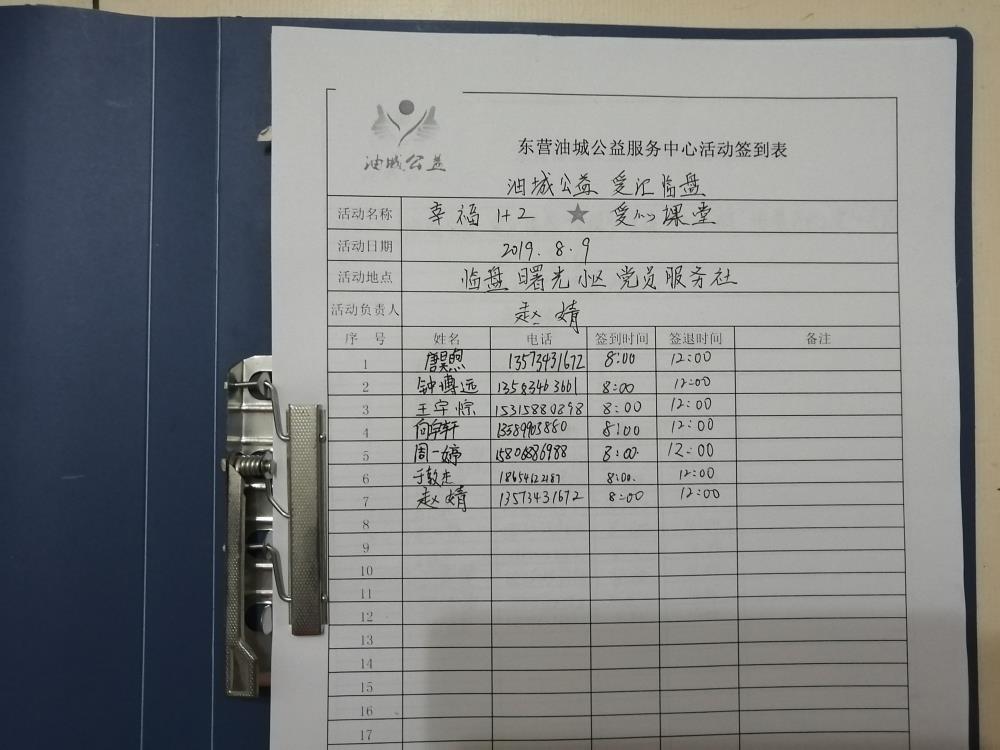 油城公益
东营油城公益服务中心活动签到表
油城公益 爱汇临盘
活动名称 幸福 1+2 ★ 爱心课堂
活动日期 2019.8.9
活动地点 临盘曙光小区党员服务社
活动负责人 赵婧
序号 姓名 电话 签到时间 签退时间 备注
1 唐昊煦 13573431672 8:00 12:00
2 钟博远 13583463661 8:00 12:00
3 王宇琮 15315880898 8:00 12:00
4 8:00 12:00
5 周一婷 8:00 12:00
6 18654122187 8:00. 12:00
7 赵婧 13573431672 8:00 12:00
8
9
10
11
12
13
14
15
16
17